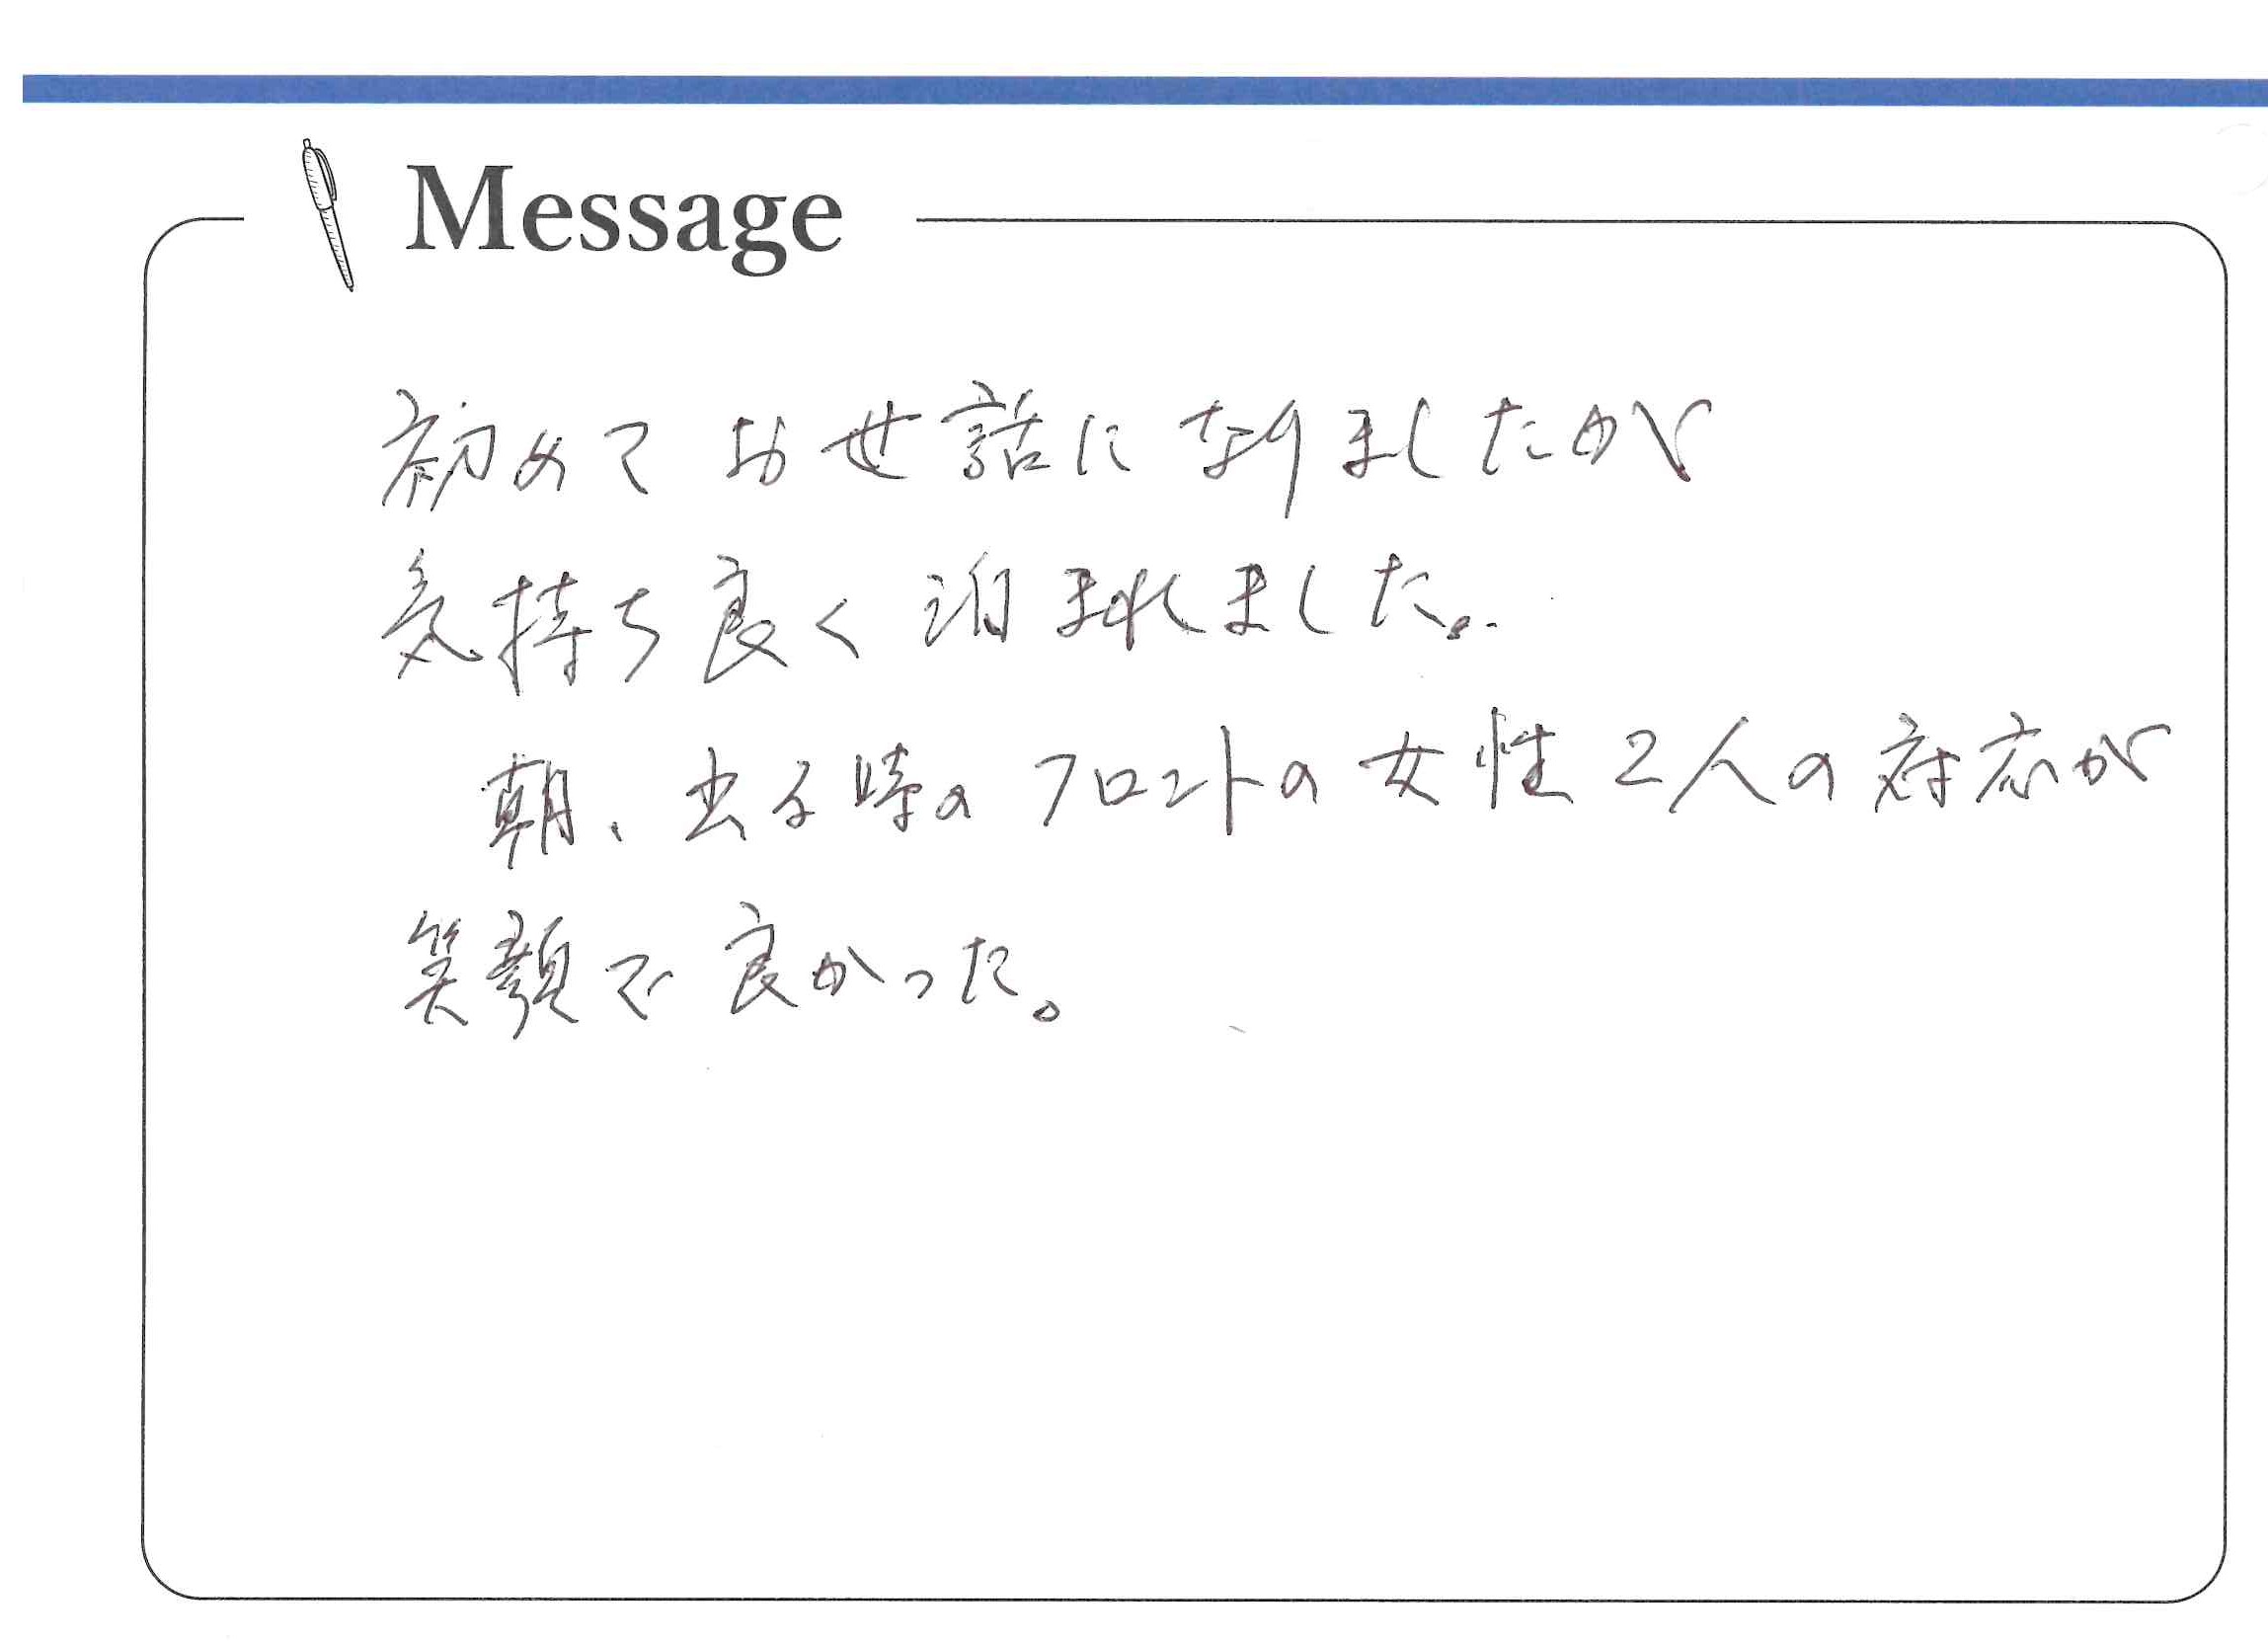 Message
初めてお世話になりましたが
気持ち良く泊まれました。
朝、出る時のフロントの女性2人の対応が
笑顔で良かった。